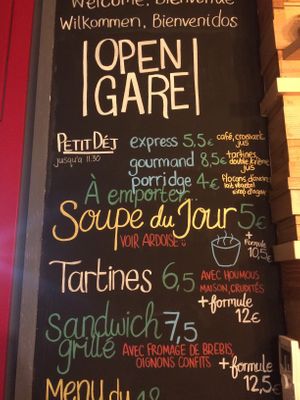 Welcome, Bienvenue
Willkommen, Bienvenidos
OPEN
GARE
PETIT DÉJ
jusqu'a 11.30
express 5,5€
café, croissant
jus
gourmand 8,5€
tartines
porridge 4€
flocons d'avoine
lait végétal
sirop d'agave
À emporter
Soupe du Jour 5€
VOIR ARDOISE
+ Formule
10,5€
Tartines 6,5
AVEC HOUMOUS
MAISON, CRUDITÉS
+ formule
12€
Sandwich 7,5
grillé
AVEC FROMAGE DE BREBIS,
OIGNONS CONFITS
+ formule
12,5€
Menu du